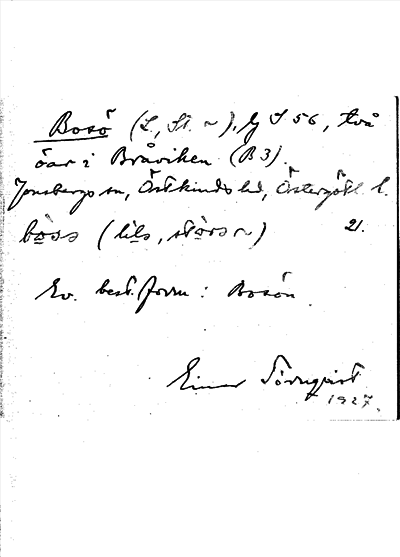 Bosö (L, St. ~), Gj S 56, två
öar i Bråviken (B3).
Jonsbergs sn, Östkinds hd, Östergötl. l.
bòss (lils, stórs ~) 21.
Ev. best. form: Bosön.
Einar Törnqvist
1927.